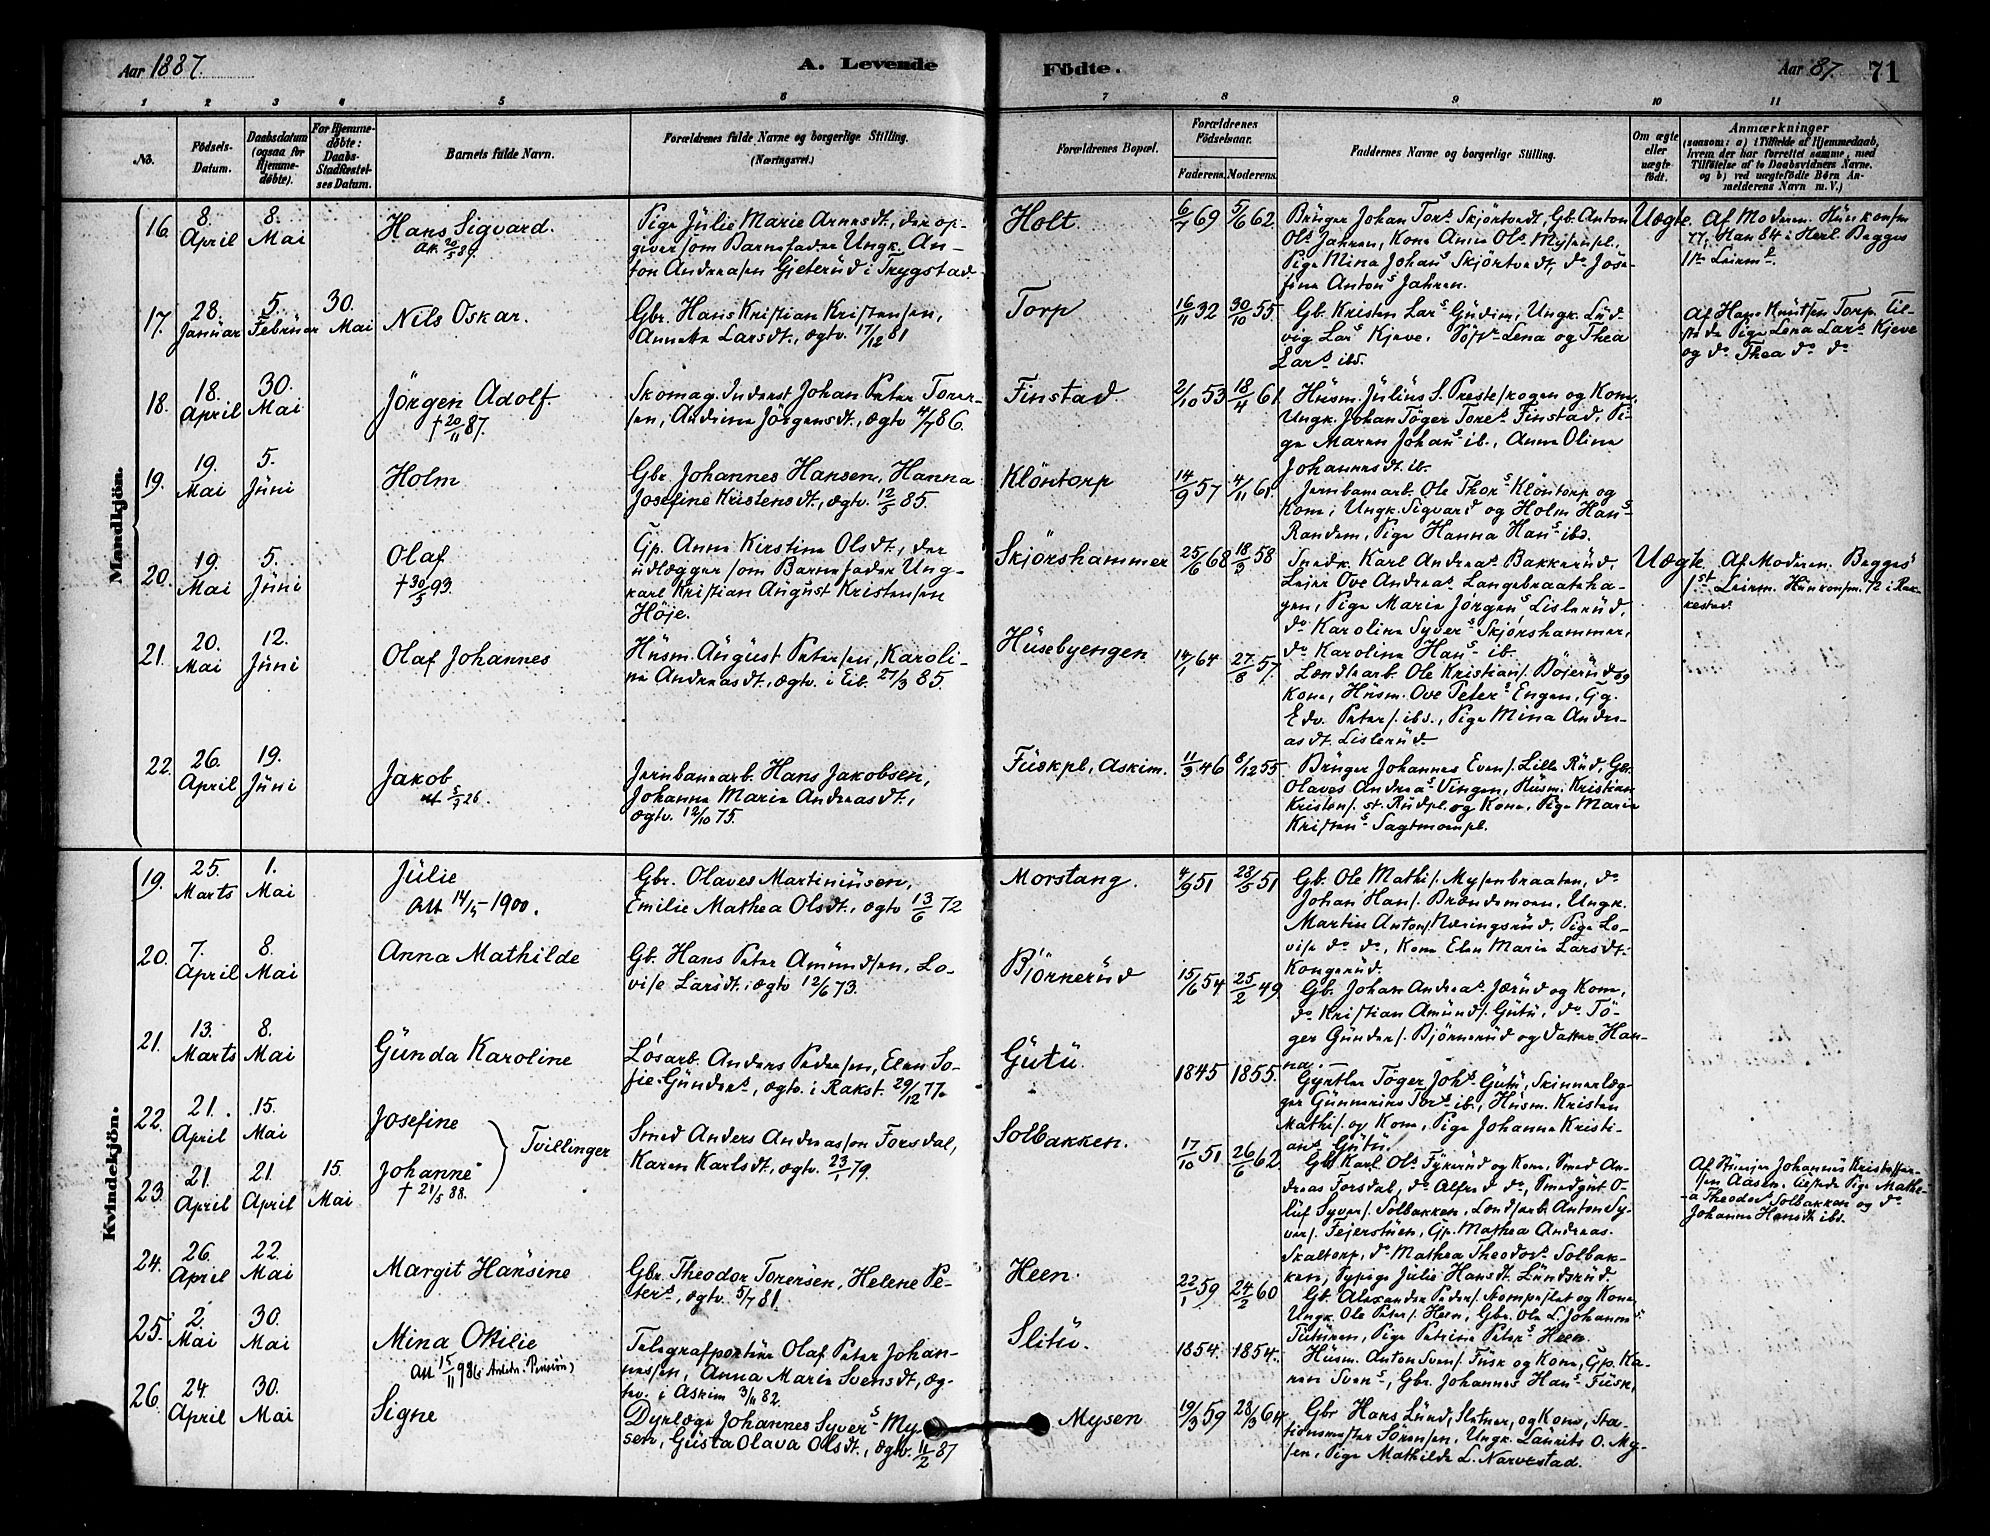 Aar 1887.
A. Levende
Födte.
Aar 87. 71
1 2 3 4 5 6 7 8 9 10 11
No.
Födsels-
Datum.
Daabsdatum
(ogsaa for
Hjemme-
döbte).
For Hjemme-
döbte:
Daabs-
Stadfæstel-
ses Datum.
Barnets fulde Navn.
Forældrenes fulde Navne og borgerlige Stilling.
(Næringsvei.)
Forældrenes Bopæl.
Forældrenes
Födselsaar.
Faderens. Moderens.
Faddernes Navne og borgerlige Stilling.
Om ægte
eller
uægte
födt.
Anmærkninger
(saasom: a) i Tilfælde af Hjemmedaab,
hvem der har forrettet samme, med
Tilföielse af to Daabsvidners Navne.
og b) ved uægtefödte Börn An-
melderens Navn m. V.)
Mandkjön.
16 8. April 8. Mai
Hans Sigvard.
Pige Julie Marie Arnesdt., der op-
giver som Barnefader Ungk. An-
ton Andreasen Gjeterud i Trygstad.
Holt.
6/7 69 5/6 62
Bruger Johan Tors Skjörtvedt, Gb. Anton
Ols Jahren, Kone Anne Ols Mysenpl.
Pige Mina Johans Skjörtvedt, do Jose-
fine Antons Jahren.
Uægte.
Af Moderen.
17. 28. Januar 5. Februar 30. Mai
Nils Oskar.
Gbr. Hans Kristian Kristensen,
Annette Larsdt., ægtv. 17/12 81
Torp
16/11 32 30/10 55
Gb. Kristen Lars Gudim, Ungk. Lud-
vig Lars Kjeve, Lena og Thea
Lars ibd.
Af Hans Knutsen Torp, til-
stede Pige Lena Lars Kjeve
og do Thea do do
18. 18. April 30. Mai
Jörgen Adolf.
† 20/11 87.
Skomag. Inderst Johan Peter Torer-
sen, Andine Jörgensdt., ægtv 4/7 86.
Finstad
2/10 53 18/4 61
Husm. Julius S. Presteskogen og Kone,
Ungk. Johan Töger Tores Finstad, Pi-
ge Maren Johans ib., Anne Oline
Johannesdt. ib.
19. 19. Mai 5. Juni
Holm
Gbr. Johannes Hansen, Hanna
Josefine Kristensdt., ægtv. 12/5 85.
Klöntorp
14/9 57 4/11 61
Jernbanearb. Ole Thors Klöntorp og
Kone, Ungk. Sigvard og Holm Hans
Randem, Pige Hanna Hans ibd.
20. 19. Mai 5. Juni
Olaf
† 30/5 93.
Gp. Anne Kirstine Olsdt., der
udlægger som Barnefader Ung-
karl Kristian August Kristensen
Höje.
Skjörshammer
25/6 68 18/3 58
Smedk. Karl Andreas Bakkerud,
Leier Ove Andreas Langebraatenha-
gen, Pige Marie Jörgens Lislerud,
do Karoline Syvers Skjörshammer,
do Karoline Hans ib.
Uægte
Af Moderen. Begges
1st Leierm. 72 i Rak-
kestad.
21. 20. Mai 12. Juni
Olaf Johannes
Husm. August Petersen, Karoli-
ne Andreasdt., ægtv. i Eib. 27/3 85.
Husebyengen
14/1 64 27/8 57.
Landsarb. Ole Kristians. Böjerud og
Kone, Husm. Ove Peters Engen, Gg.
Edv. Peters. ibd., Pige Mina Andre-
asdt. Lislerud.
22. 26. April 19. Juni
Jakob
5/3 26.
Jernbanearb. Hans Jakobsen,
Johanne Marie Andreasdt.,
ægtv. 12/10 75.
Fuskpl, Askim.
11/3 46 8/12 55.
Bruger Johannes Evens. Lille Rud, Gbr.
Olaves Andreas Vingen, Husm. Kristian
Kristens. st. Rudpl. og Kone, Pige Marie
Kristens Sagtmoenpl.
Kvindekjön.
19. 25. Marts 1. Mai
Julie
Att 14/5 1900.
Gbr. Olaves Martiniusen,
Emilie Mathea Olsdt., ægtv 13/6 72
Morstang.
4/9 51 28/5 51
Gb. Ole Mathis. Mysenbraaten, do
Johan Hans. Brændemoen, Ungk.
Martin Antons. Næringsrud, Pige Lo-
vise do do, Kone Elen Marie Larsdt.
Kongerud.
20. 7. April 8. Mai
Anna Mathilde
Gb. Hans Peter Amundsen, Lo-
vise Larsdt., ægtv 12/6 73.
Björnerud
15/6 54 25/2 49
Gb. Johan Andreas Jærud og Kone,
do Kristian Amunds. Gutu, do Tö-
ger Gunders. Bjørnerud og Datter Han-
na. —
21. 13. Marts 8. Mai
Gunda Karoline
Løsarb. Anders Pedersen, Elen So-
fie Gunders, ægtv. i Rakst. 29/12 77.
Gutu
1845 1855.
Gyrtler Töger Johs Gutu, Skinnerlæg-
ger Gunnerius Tors ib., Husm. Kristen
Mathis. og Kone, Pige Johanne Kristi-
ans Gutu.
22. 21. April 15. Mai
Josefine
23. 21. April 21. April 15. Mai
Johanne
† 21/5 88.
Tvillinger
Smed Anders Andreassen Forsdal,
Karen Karlsdt., ægtv. 23/1 79.
Solbakken.
17/10 51. 26/6 62
Gb. Karl Ols Fykerud og Kone, Smed An-
dreas Forsdal, do Alfred do, Smedgut O-
luf Syvers. Solbakken, Landsarb. Anton Sy-
vers. Fejerstuen, Gp. Mathea Andreas.
Skaltorp, do Mathea Theodors Solbak-
ken, Sypige Julie Hansdt. Lundsrud.
Af Johannes Kristoffer-
sen Aasen, tilstede Pige Mathe-
a Theodors Solbakken og do
Johanne Hansdt. ibd.
24. 26. April 22. Mai
Margit Hansine
Gbr. Theodor Torersen, Helene Pe-
ters, ægtv. 5/7 81.
Heen.
22/1 59 24/2 60
Gb. Alexander Peders. og Kone,
Ungk. Ole Peters. Heen, Gbr. Ole L. Johanns
Tuturen, Pige Petrine Peters Heen.
25. 2. Mai 30. Mai
Mina Otilie
Att 15/11 98
Telegrafportør Olaf Peter Johan-
nessen, Anna Marie Svensdt., æg-
tv. i Askim 3/11 82.
Slitu.
1854. 1854.
Husm. Anton Svens. Fusk og Kone, Gp. Ka-
ren Svens, Gbr. Johannes Hans Fusk.
26. 24. April 30. Mai
Signe
Dyrlæge Johannes Syvers My-
sen, Gusta Olava Olsdt., ægtv. 11/2 87
Mysen
19/3 59 28/3 64
Gbr Hans Lund, Sletner, og Kone, Sta-
tionsmester Sörensen, Ungk. Laurits O. My-
sen, Pige Mathilde L. Narvestad.